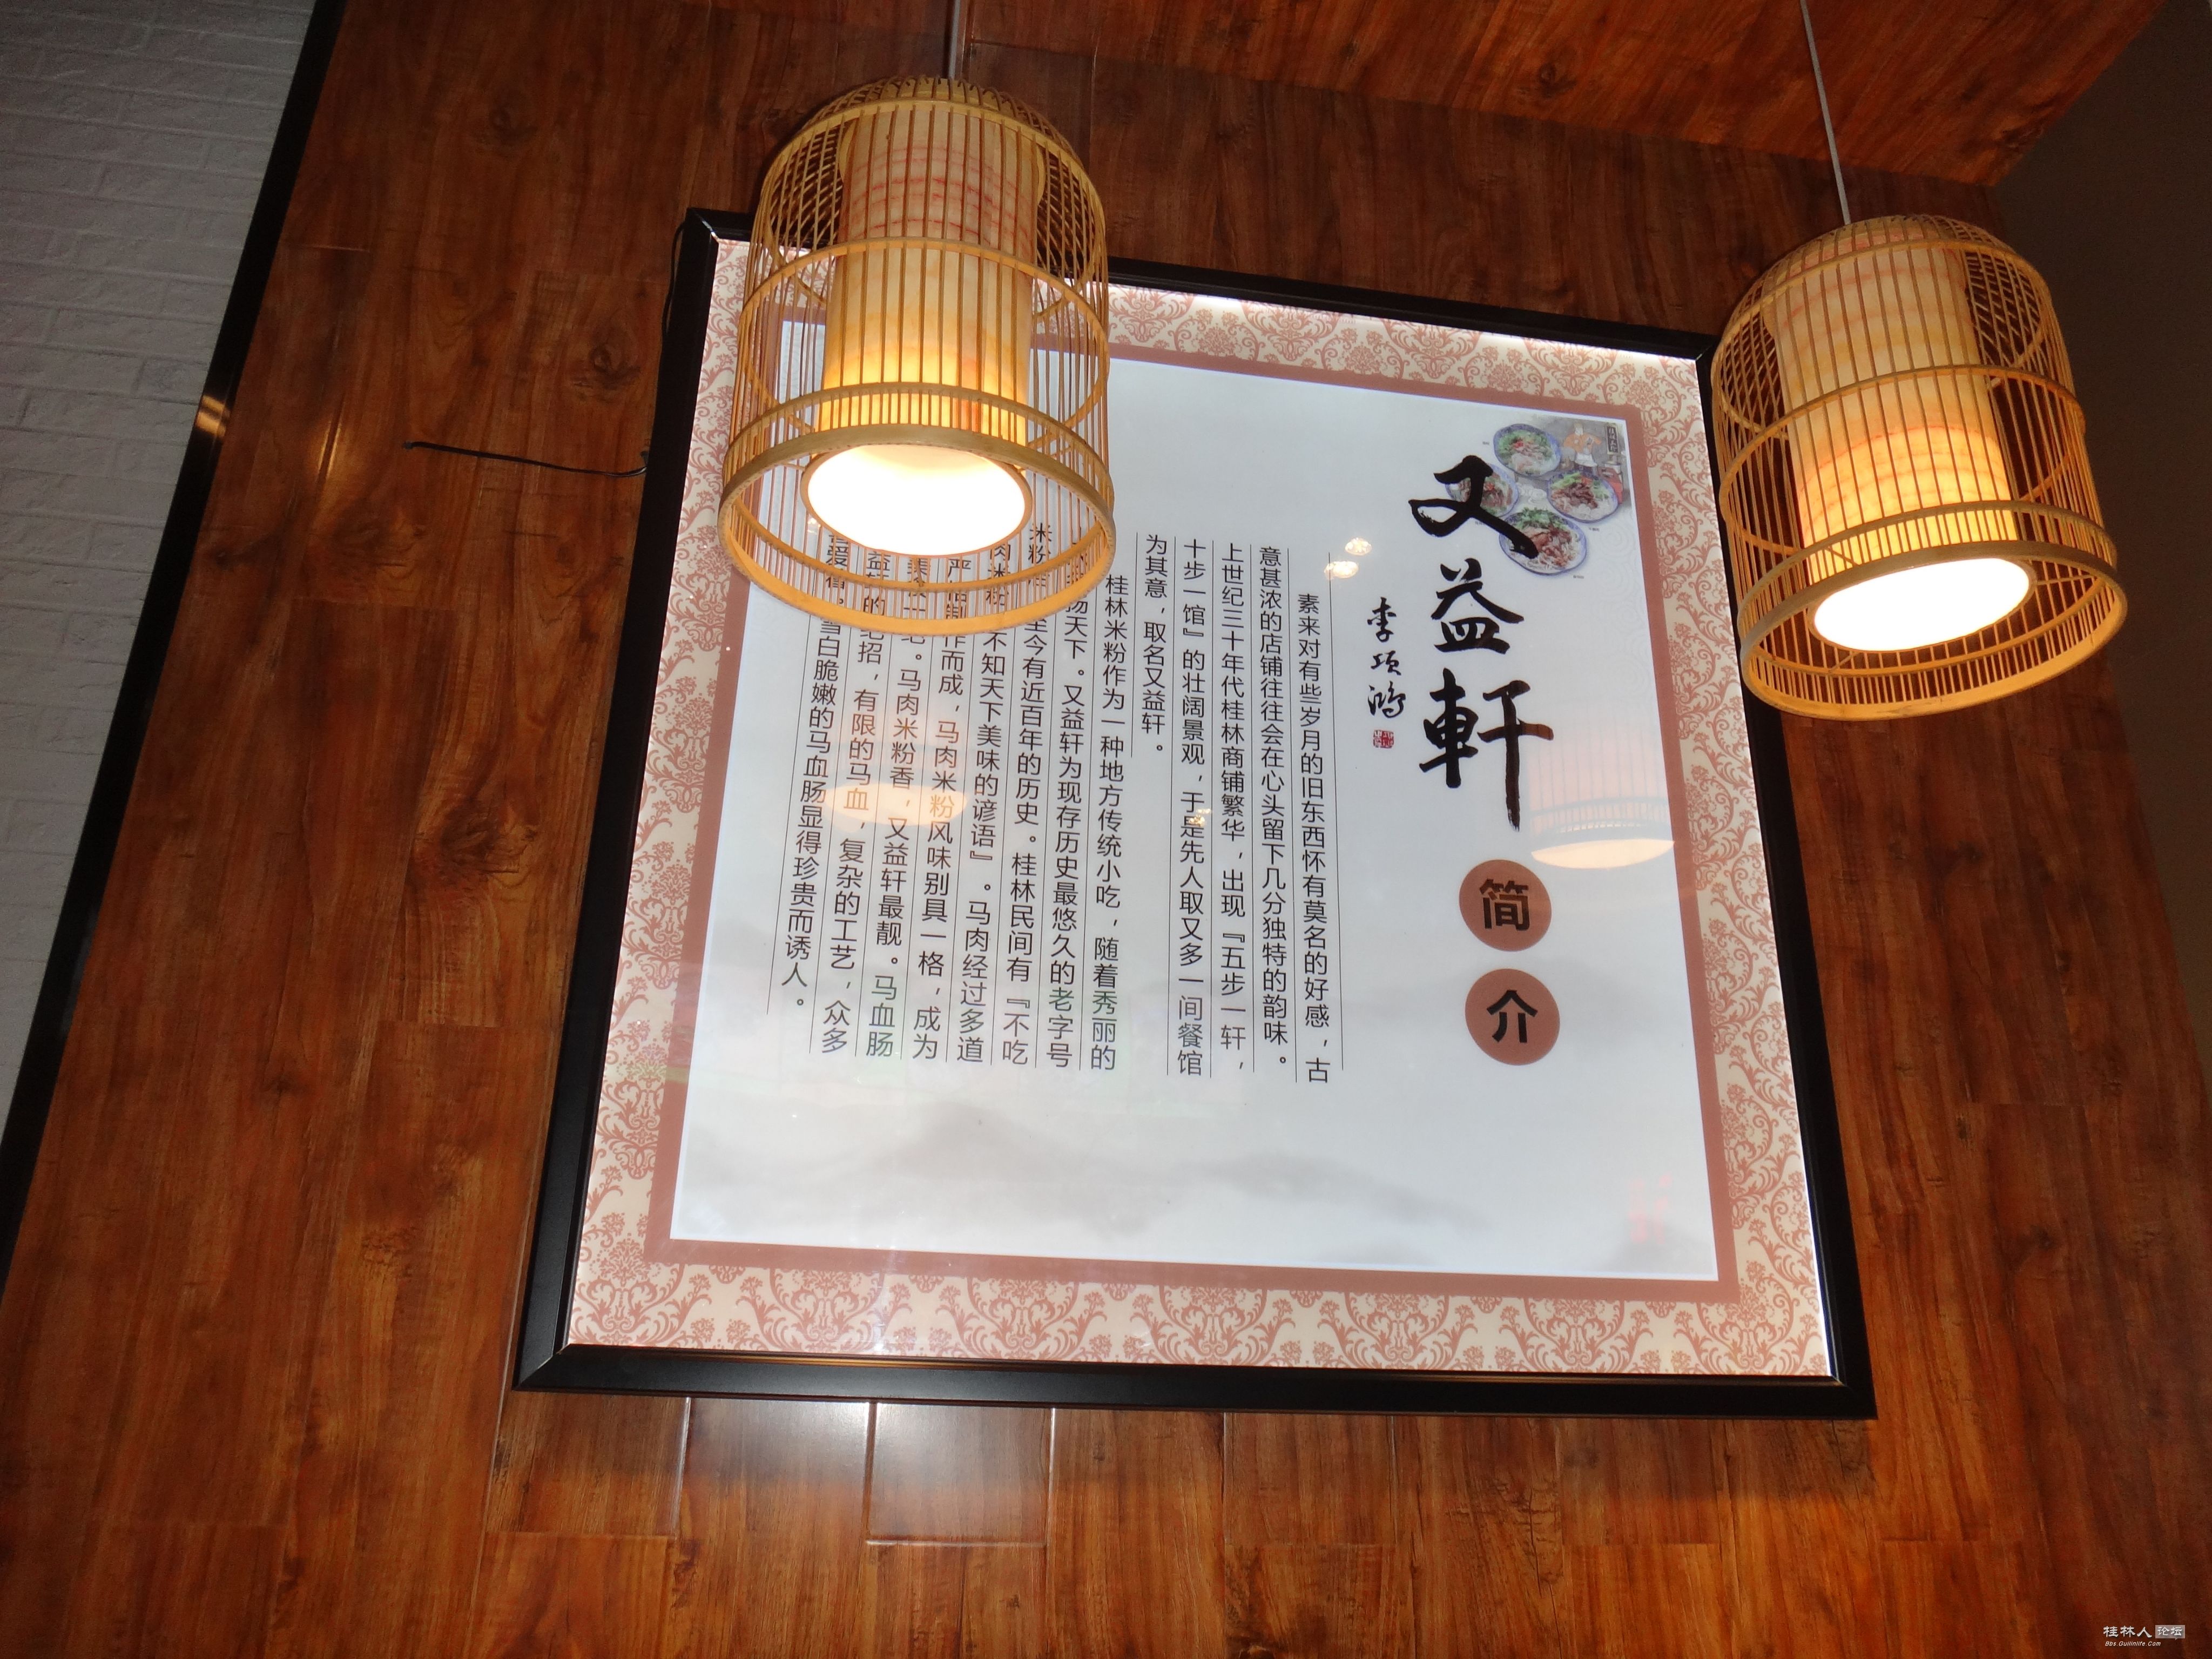 又益軒
简介
李项鸿
素来对有些岁月的旧东西怀有莫名的好感，古
意甚浓的店铺往往会在心头留下几分独特的韵味。
上世纪三十年代桂林商铺繁华，出现『五步一轩，
十步一馆』的壮阔景观，于是先人取又多一间餐馆
为其意，取名又益轩。
桂林米粉作为一种地方传统小吃，随着秀丽的
扬天下。又益轩为现存历史最悠久的老字号
米粉 至今有近百年的历史。桂林民间有『不吃
肉米粉 不知天下美味的谚语』。马肉经过多道
严格制作而成，马肉米粉风味别具一格，成为
一绝。马肉米粉香，又益轩最靓。马血肠
益轩的绝招，有限的马血，复杂的工艺，众多
喜爱者。雪白脆嫩的马血肠显得珍贵而诱人。
桂林人论坛
Bbs.Guilinlife.Com